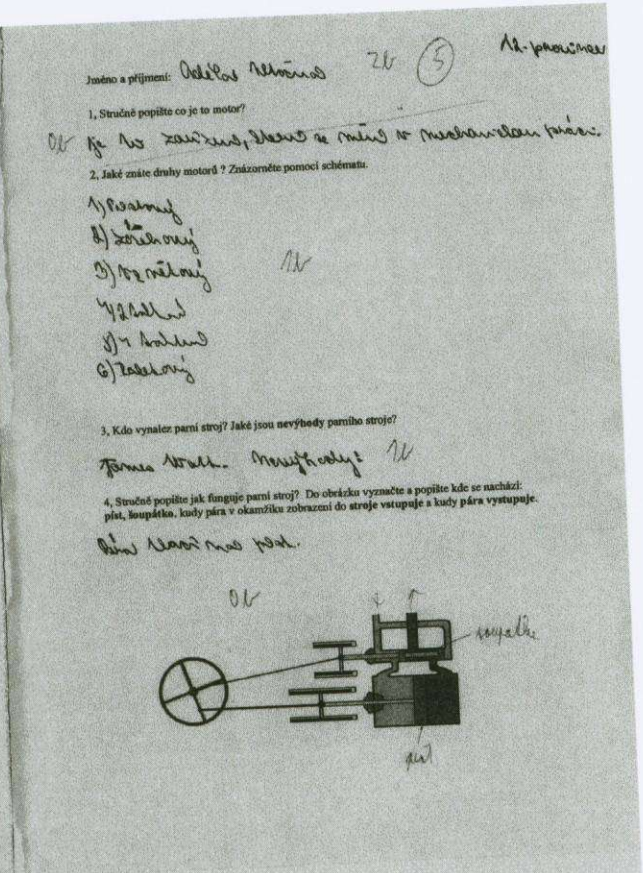 12. prosinec
Jméno a příjmení: 2b 5
1, Stručně popište co je to motor?
0b Je to zařízení, které se mění v mechanickou práci.
2, Jaké znáte druhy motorů ? Znázorněte pomocí schématu.
1) Pístový
2) zážehový
3) vznětový 1b
4) 2 taktní
5) 4 taktní
6)
3, Kdo vynalez parní stroj? Jaké jsou nevýhody parního stroje?
James Watt. Nevýhody: 1b
4, Stručně popište jak funguje parní stroj? Do obrázku vyznačte a popište kde se nachází:
píst, šoupátko, kudy pára v okamžiku zobrazení do stroje vstupuje a kudy pára vystupuje.
Pára tlačí na píst.
0b
šoupátko
píst